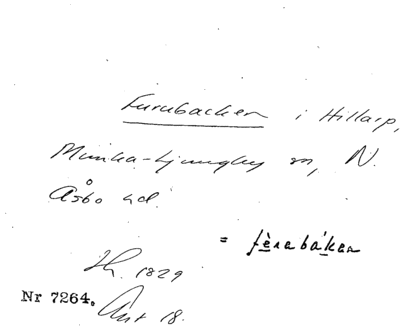 Furubacken i Hillarp,
Munka-Ljungby sn, N.
Åsbo hd.
= fèrabákan
1829
Nr 7264.
18.